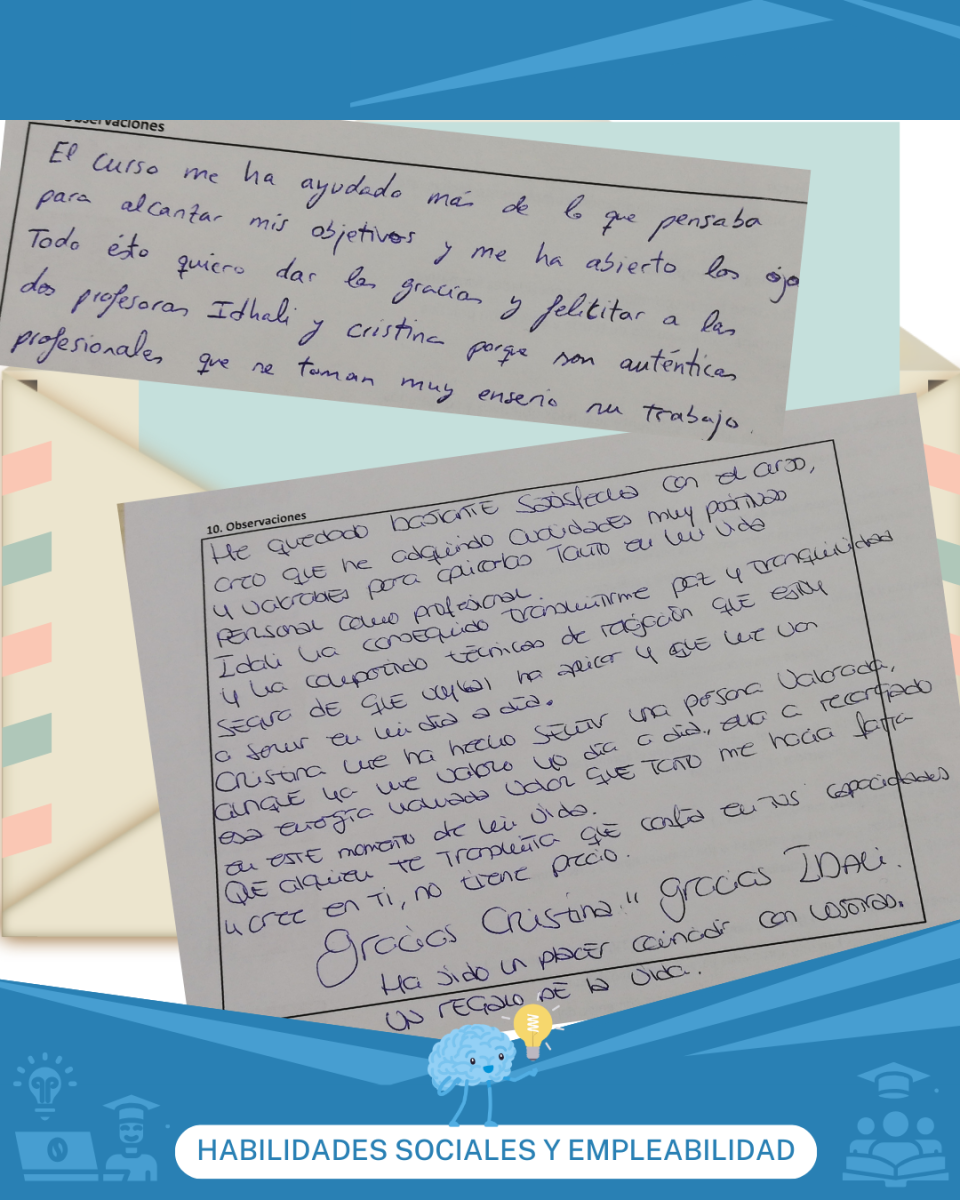 Observaciones
El curso me ha ayudado más de lo que pensaba
para alcantar mis objetivos y me ha abierto los ojo
Todo ésto quiero dar las gracias y felititar a las
dos profesoras Idhali y cristina porque son auténticas
profesionales que se toman muy enserio su trabajo.
10. Observaciones
He quedado bastante satisfecha con el curso,
creo que he adquirido cualidades muy positivas
y valorables para aplicarlas tanto en mi vida
personal como profesional.
Idali ha conseguido transmitirme paz y tranquilidad
y ha compartido técnicas de relajación que estoy
segura de que voy a aplicar y que me van
a servir en mi día a día.
Cristina me ha hecho sentir una persona valorada,
aunque ya me valoro yo día a día, ella a recargado
esa energía llamada valor que tanto me hacía falta
en este momento de mi vida.
Que alguien te transmita que confía en tus capacidades
y cree en ti, no tiene precio.
Gracias Cristina" gracias IDALI.
Ha sido un placer coincidir con vosotras.
un regalo de la vida.
HABILIDADES SOCIALES Y EMPLEABILIDAD